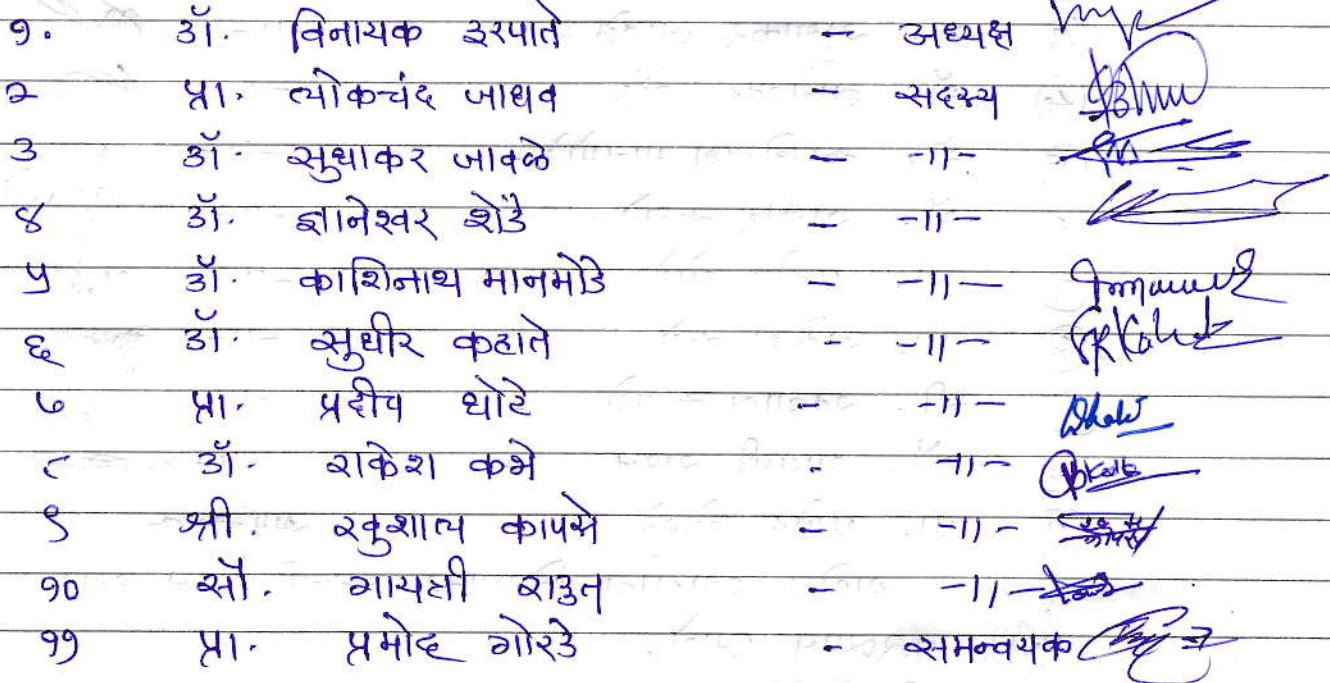 १. डॉ. विनायक इरपाते - अध्यक्ष
२ प्रा. त्योकचंद जाधव - सदस्य
३ डॉ. सुधाकर जावळे - -11-
४ डॉ. ज्ञानेश्वर शेंडे - -11-
५ डॉ. काशिनाथ मानमोडे - -11-
६ डॉ. सुधीर कहाते - -11-
७ प्रा. प्रदीप धोटे - -11-
८ डॉ. राकेश कभे - -11-
९ श्री. खुशाल कापसे - -11-
१० सौ. गायत्री राउत - -11-
११ प्रा. प्रमोद गोरडे - समन्वयक